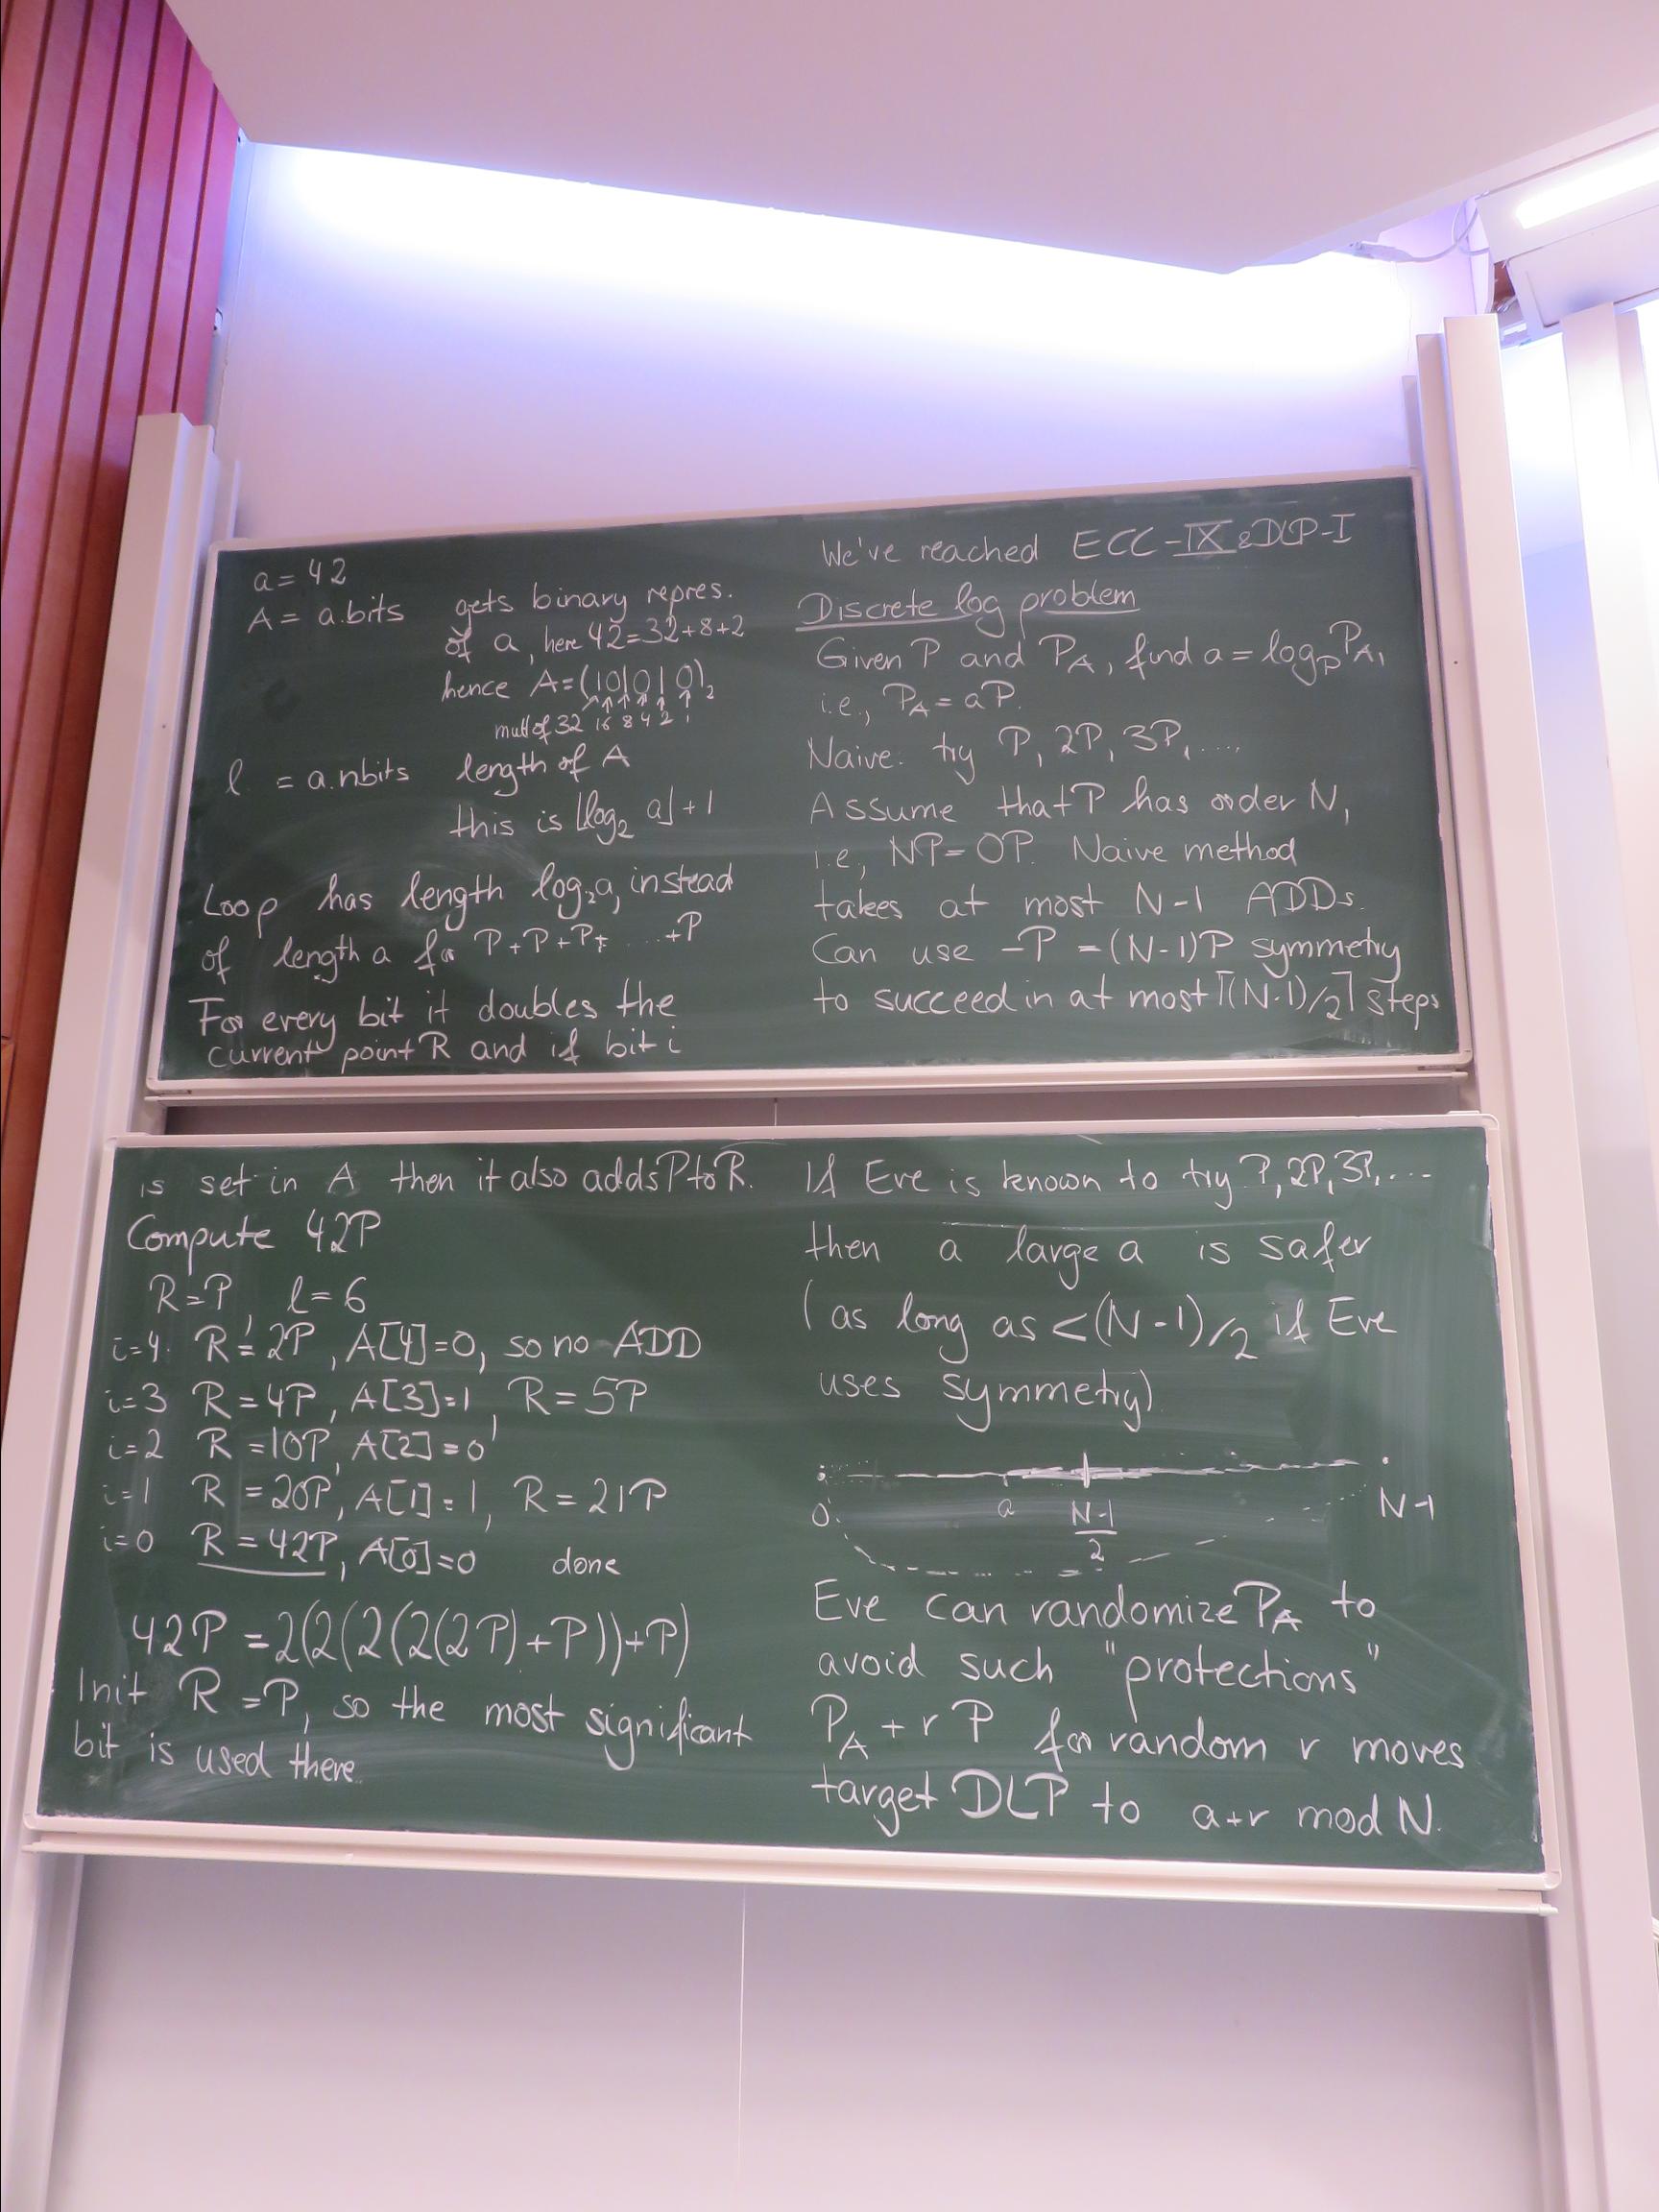 a = 42
A = a.bits gets binary repres.
of a, here 42=32+8+2
hence A=(101010)₂
mult of 32 16 8 4 2 1
l = a.nbits length of A
this is ⌊log₂ a⌋+1
Loop has length log₂a, instead
of length a for P+P+P+ ... +P
For every bit it doubles the
current point R and if bit i
We've reached ECC-IX & DLP-I
Discrete log problem
Given P and P_A, find a = log_P P_A,
i.e., P_A = aP.
Naive: try P, 2P, 3P, ....
Assume that P has order N,
i.e, NP=OP. Naive method
takes at most N-1 ADDs.
Can use -P = (N-1)P symmetry
to succeed in at most ⌈(N-1)/2⌉ steps
is set in A then it also adds P to R.
Compute 42P
R=P, l=6
i=4. R=2P, A[4]=0, so no ADD
i=3 R=4P, A[3]=1, R=5P
i=2 R=10P, A[2]=0
i=1 R=20P, A[1]=1, R=21P
i=0 R=42P, A[0]=0 done
42P =2(2(2(2(2P)+P))+P)
Init R=P, so the most significant
bit is used there.
If Eve is known to try P, 2P, 3P, ...
then a large a is safer
(as long as <(N-1)/2 if Eve
uses symmetry)
0 a (N-1)/2 N-1
Eve can randomize P_A to
avoid such "protections"
P_A + r P for random r moves
target DLP to a+r mod N.